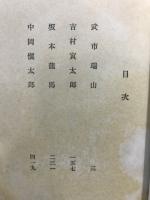 目次
武市瑞山 三
吉村寅太郎 一五七
坂本龍馬 二三一
中岡慎太郎 四一九